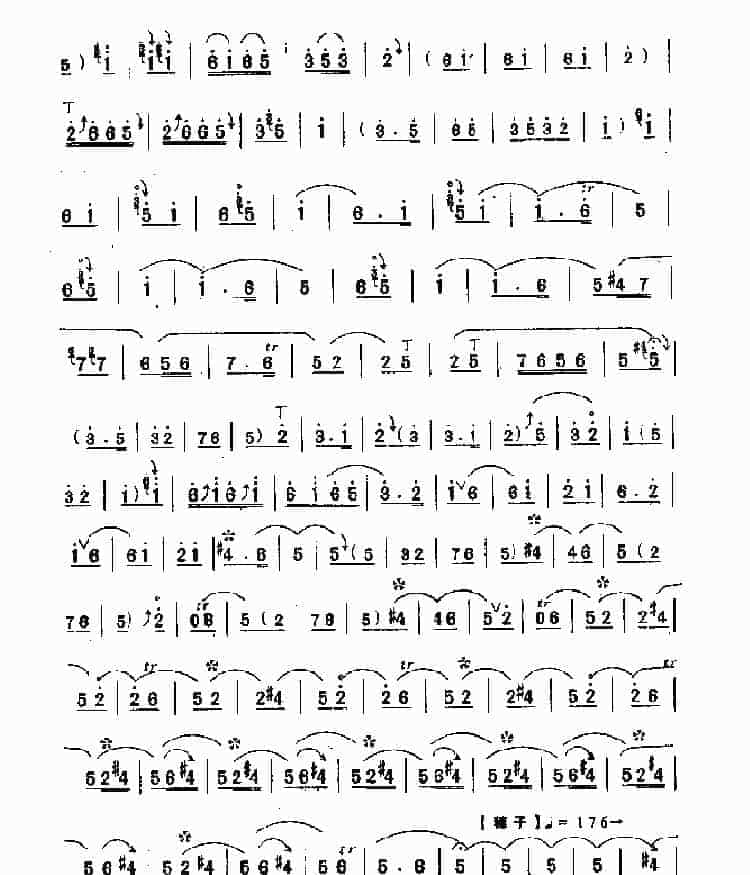 5) i | i i | 6 i 6 5 | 3 5 3 | 2 | (6 i | 6 i | 6 i | 2) |
T
2 6 6 5 | 2 6 6 5 | 3 5 | i | (3 . 5 | 6 5 | 3 5 3 2 | i) i |
6 i | 5 i | 6 5 | i | 6 . i | 5 i | i . 6 tr | 5 |
6 5 | i | i . 6 | 5 | 6 5 | i | i . 6 | 5 #4 7 |
7 7 | 6 5 6 | 7 . 6 tr | 5 2 | 2 5 T | 2 5 T | 7 6 5 6 | 5 #5 |
(3 . 5 | 3 2 | 7 6 | 5) 2 T | 3 . i | 2 (3 | 3 . i | 2) 5 | 3 2 | i (5 |
3 2 | i) i | 6 i 6 i | 6 i 6 5 | 3 . 2 | i 6 | 6 i | 2 i | 6 . 2 |
i 6 | 6 i | 2 i | #4 . 6 | 5 | 5 (5 | 3 2 | 7 6 | 5) #4 | 4 6 | 5 (2 |
7 6 | 5) 2 | 0 6 tr | 5 (2 7 6 | 5) #4 | 4 6 | 5 2 | 0 6 tr | 5 2 | 2 #4 |
5 2 | 2 6 tr | 5 2 | 2 #4 | 5 2 | 2 6 tr | 5 2 | 2 #4 | 5 2 | 2 6 tr
5 2 #4 | 5 6 #4 | 5 2 #4 | 5 6 #4 | 5 2 #4 | 5 6 #4 | 5 2 #4 | 5 6 #4 | 5 2 #4 |
【穗子】♩=176→
5 6 #4 | 5 2 #4 | 5 6 #4 | 5 6 tr | 5 . 6 | 5 | 5 | 5 | 5 | #4 |